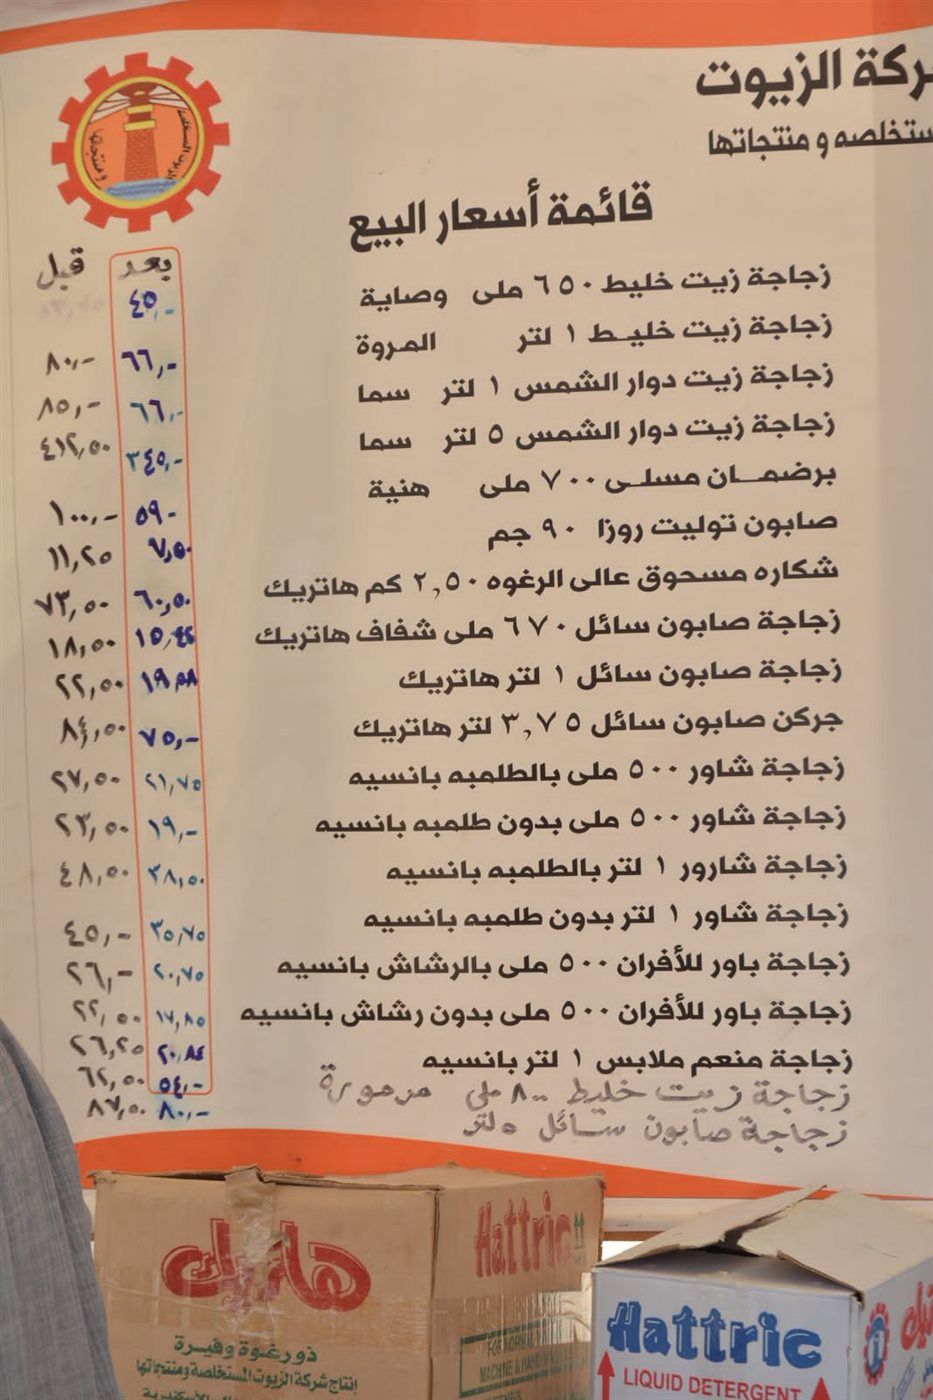 ركة الزيوت
ستخلصه و منتجاتها
قائمة أسعار البيع
بعد قبل
زجاجة زيت خليط ٦٥٠ ملى وصاية ٤٥,-
زجاجة زيت خليط ١ لتر المروة ٦٦,- ٨٠,-
زجاجة زيت دوار الشمس ١ لتر سما ٦٦,- ٨٥,-
زجاجة زيت دوار الشمس ٥ لتر سما ٣٤٥,- ٤١٢,٥٠
برضمان مسلى ٧٠٠ ملى هنية ٥٩- ١٠٠,-
صابون توليت روزا ٩٠ جم ٧,٥٠ ١١,٢٥
شكاره مسحوق عالى الرغوه ٢,٥٠ كم هاتريك ٦٠,٥٠ ٧٣,٥٠
زجاجة صابون سائل ٦٧٠ ملى شفاف هاتريك ١٨,٥٠
زجاجة صابون سائل ١ لتر هاتريك ٢٢,٥٠
جركن صابون سائل ٣,٧٥ لتر هاتريك ٧٥,- ٨٤,٥٠
زجاجة شاور ٥٠٠ ملى بالطلمبه بانسيه ٢١,٧٥ ٢٧,٥٠
زجاجة شاور ٥٠٠ ملى بدون طلمبه بانسيه ١٩,- ٢٣,٥٠
زجاجة شارور ١ لتر بالطلمبه بانسيه ٣٨,٥٠ ٤٨,٥٠
زجاجة شاور ١ لتر بدون طلمبه بانسيه ٣٥,٧٥ ٤٥,-
زجاجة باور للأفران ٥٠٠ ملى بالرشاش بانسيه ٢٠,٧٥ ٢٦,-
زجاجة باور للأفران ٥٠٠ ملى بدون رشاش بانسيه ١٧,٨٥ ٢٢,٥٠
زجاجة منعم ملابس ١ لتر بانسيه ٢٠,٨٤ ٢٦,٢٥
زجاجة زيت خليط ٨٠٠ ملى ٥٤,- ٦٢,٥٠
زجاجة صابون سائل ٥ لتر ٨٠,- ٨٧,٥٠
هاتريك
Hattric
ذو رغوة وفيرة
إنتاج شركة الزيوت المستخلصة ومنتجاتها
Hattric
LIQUID DETERGENT